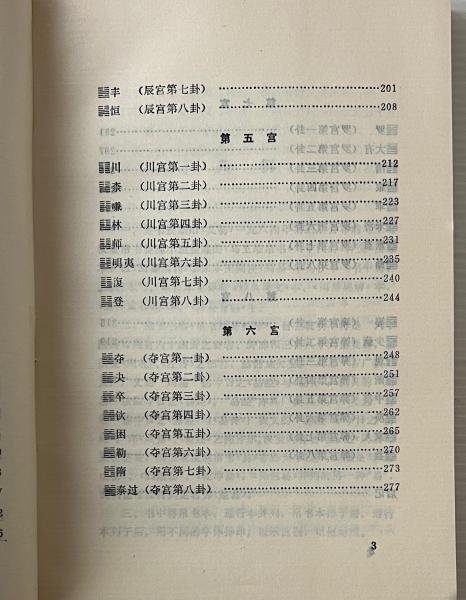 丰 (辰宫第七卦) ……………………………201
恒 (辰宫第八卦) ……………………………208
第五宫
川 (川宫第一卦) ……………………………212
柰 (川宫第二卦) ……………………………217
嗛 (川宫第三卦) ……………………………223
林 (川宫第四卦) ……………………………227
师 (川宫第五卦) ……………………………231
明夷 (川宫第六卦) …………………………235
復 (川宫第七卦) ……………………………240
登 (川宫第八卦) ……………………………244
第六宫
夺 (夺宫第一卦) ……………………………248
夬 (夺宫第二卦) ……………………………251
卒 (夺宫第三卦) ……………………………257
钦 (夺宫第四卦) ……………………………262
困 (夺宫第五卦) ……………………………265
勒 (夺宫第六卦) ……………………………270
隋 (夺宫第七卦) ……………………………273
泰过 (夺宫第八卦) …………………………277
3